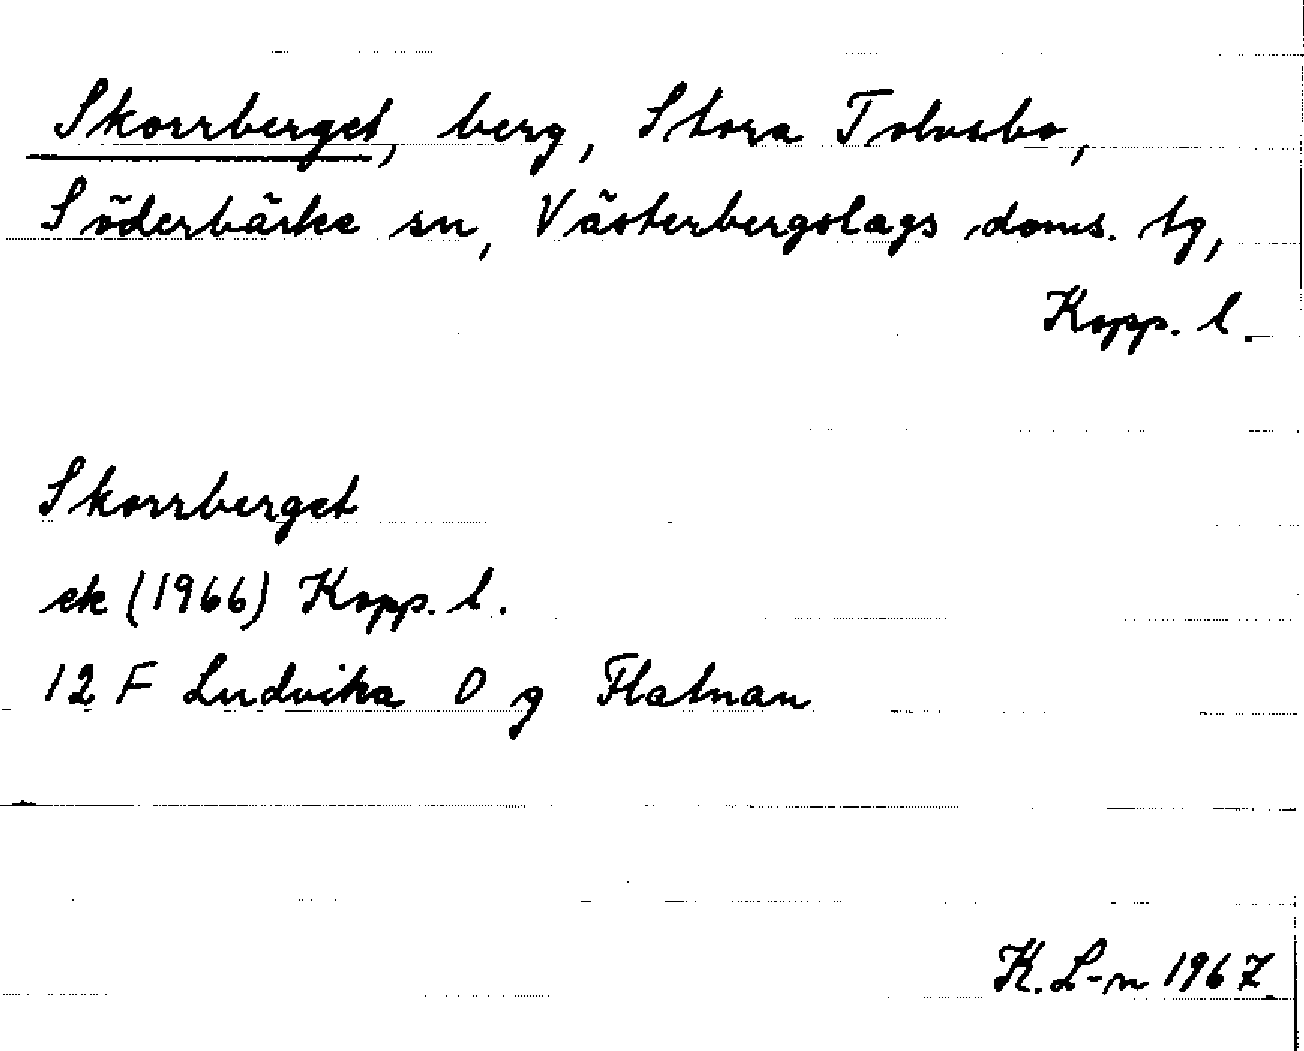 Skorrberget, berg, Stora Tolvsbo,
Söderbärke sn, Västerbergslags doms. tg,
Kopp. l.
Skorrberget
ek (1966) Kopp. l.
12 F Ludvika O g Flatnan
K. L-n 1967